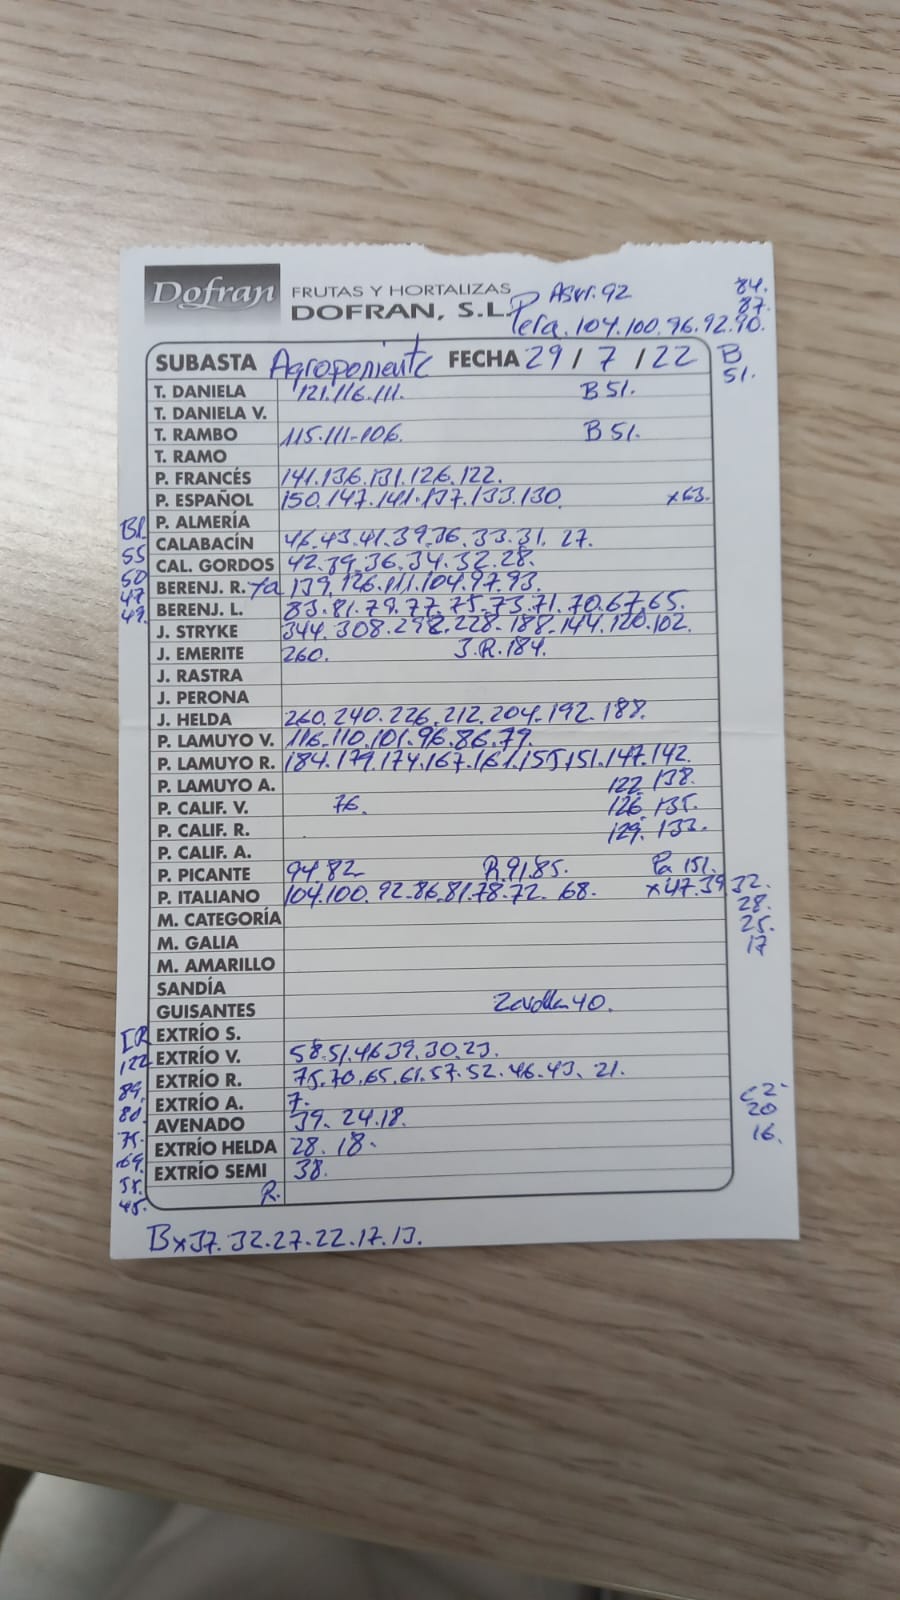 Dofran FRUTAS Y HORTALIZAS Asur. 92 84.
DOFRAN, S.L. 87.
Pera. 104.100.96.92.90.
SUBASTA Agroponiente FECHA 29 / 7 / 22 B
51.
T. DANIELA 121.116.111. B 51.
T. DANIELA V.
T. RAMBO 115.111-106. B 51.
T. RAMO
P. FRANCÉS 141.136.131.126.122.
P. ESPAÑOL 150.147.141.137.133.130. x63.
P. ALMERÍA
Bl. CALABACÍN 46.43.41.39.36.33.31. 27.
55 CAL. GORDOS 42.39.36.34.32.28.
50 BERENJ. R. Ya 139.126.111.104.97.93.
47 BERENJ. L. 83.81.79.77.75.73.71.70.67.65.
42. J. STRYKE 344.308.298.228.188.144.120.102.
J. EMERITE 260. J.R.184.
J. RASTRA
J. PERONA
J. HELDA 260.240.226.212.204.192.188.
P. LAMUYO V. 116.110.101.96.86.79.
P. LAMUYO R. 184.179.174.167.161.155.151.147.142.
P. LAMUYO A. 122. 138.
P. CALIF. V. 76. 126. 135.
P. CALIF. R. 129. 133.
P. CALIF. A.
P. PICANTE 94.82 R.91.85. Pa 151.
P. ITALIANO 104.100.92.86.81.78.72. 68. x47.39.32.
M. CATEGORÍA 28.
M. GALIA 25.
M. AMARILLO 17
SANDÍA
GUISANTES 40.
EXTRÍO S.
122 EXTRÍO V. 58.51.46.39.30.23.
89. EXTRÍO R. 75.70.65.61.57.52.46.43. 21.
80. EXTRÍO A. 7.
75. AVENADO 39. 24.18. 20
69. EXTRÍO HELDA 28. 18. 16.
55. EXTRÍO SEMI 38.
45. R.
Bx37.32.27.22.17.13.